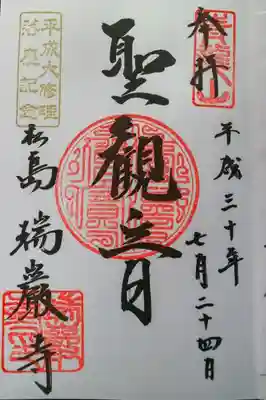 奉拝
平成三十年
七月二十四日
聖観音
平成大修理
落慶記念
松島 瑞巌寺